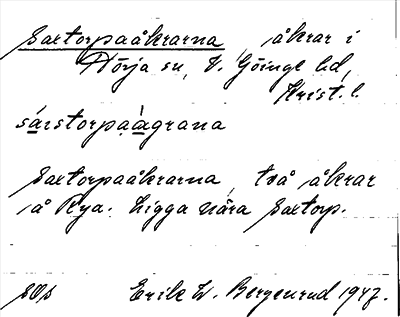 Sartorpaåkrarna, åkrar i
Nörja sn, V. Göinge hd,
Krist. l.
sárstorpaàgrana
Sartorpaåkrarna, två åkrar
å Rya. Ligga nära Sartorp.
SOs Erik W. Bergenrud 1947.